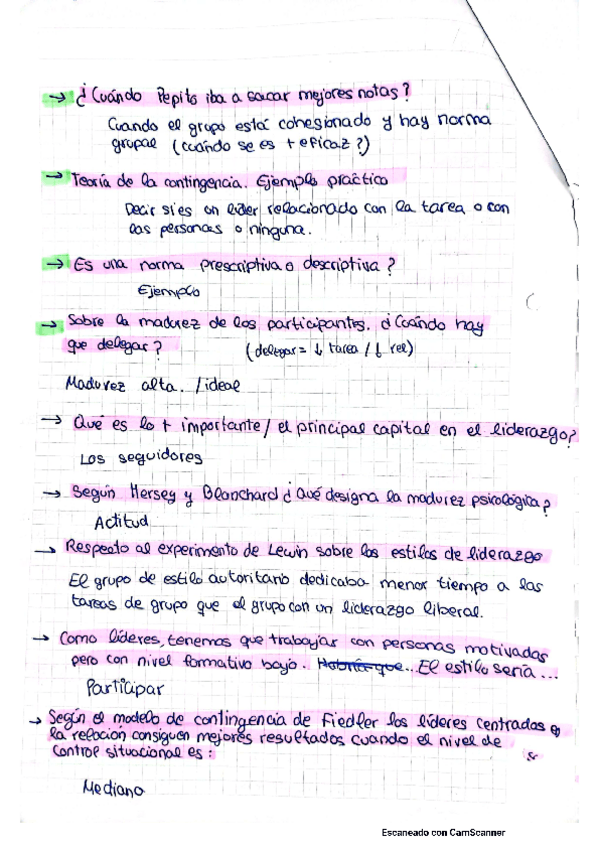 → ¿Cuándo Pepito iba a sacar mejores notas?
Cuando el grupo está cohesionado y hay norma
grupal (cuándo se es + eficaz?)
→ Teoría de la contingencia. Ejemplo práctico
Decir si es un líder relacionado con la tarea o con
las personas o ninguna.
→ Es una norma prescriptiva o descriptiva?
Ejemplo
→ Sobre la madurez de los participantes. ¿Cuándo hay
que delegar? (delegar = ↓ tarea / ↓ rel)
Madurez alta. / ideal
→ Qué es lo + importante / el principal capital en el liderazgo?
Los seguidores
→ Según Hersey y Blanchard ¿Qué designa la madurez psicológica?
Actitud
→ Respecto al experimento de Lewin sobre los estilos de liderazgo
El grupo de estilo autoritario dedicaba menor tiempo a las
tareas de grupo que el grupo con un liderazgo liberal.
→ Como líderes, tenemos que trabajar con personas motivadas
pero con nivel formativo bajo. Habría que... El estilo sería...
Participar
→ Según el modelo de contingencia de Fiedler los líderes centrados en
la relación consiguen mejores resultados cuando el nivel de
control situacional es:
Mediano
Escaneado con CamScanner